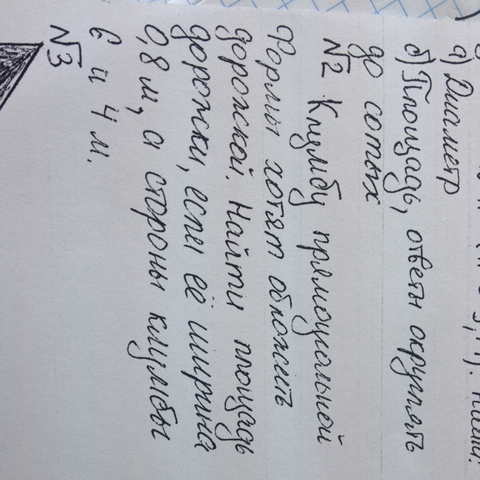 3,14). Найти:
а) Диаметр
б) Площадь, ответы округлять
до сотых
№2 Клумбу прямоугольной
формы хотят обложить
дорожкой. Найти площадь
дорожки, если её ширина
0,8 м, а стороны клумбы
6 и 4 м.
№3